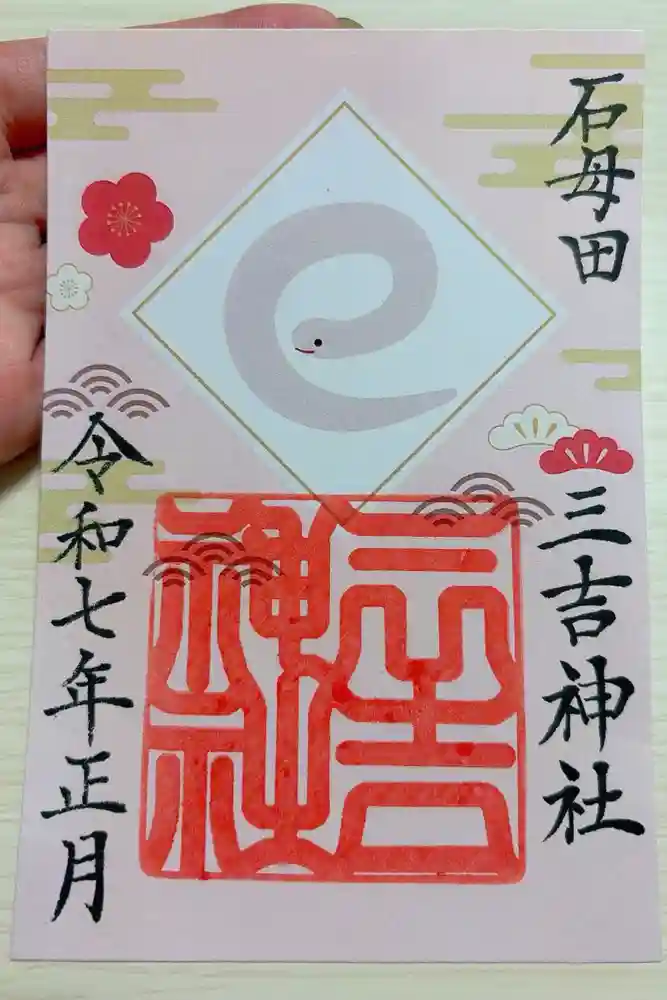 石母田
三吉神社
令和七年正月
三吉
神社